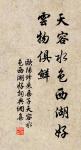 天容水色西湖好
雲物俱鮮
歐陽修采桑子天容水
色西湖好